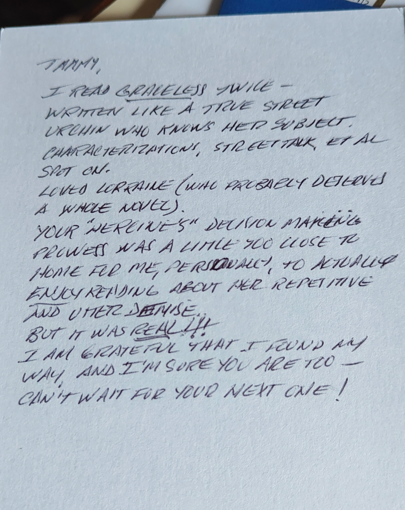 TAMMY,
I READ GRACELESS TWICE –
WRITTEN LIKE A TRUE STREET
URCHIN WHO KNOWS HER SUBJECT.
CHARACTERIZATIONS, STREET TALK, ET AL
SPOT ON.
LOVED LORRAINE (WHO PROBABLY DESERVES
A WHOLE NOVEL).
YOUR "HEROINE'S" DECISION MAKING
PROWESS WAS A LITTLE TOO CLOSE TO
HOME FOR ME, PERSONALLY, TO ACTUALLY
ENJOY READING ABOUT HER REPETITIVE
AND UTTER DEMISE.
BUT IT WAS REAL!!!
I AM GRATEFUL THAT I FOUND MY
WAY, AND I'M SURE YOU ARE TOO –
CAN'T WAIT FOR YOUR NEXT ONE!